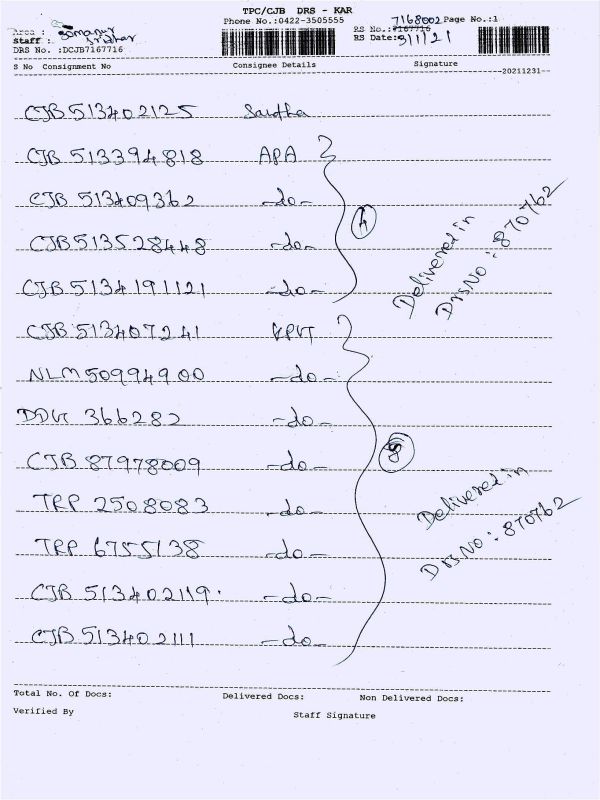 TPC/CJB DRS - KAR
Phone No.:0422-3505555
7168002 Page No.:1
Area : Somanur
RS No.:
staff : Sridhar
RS Date: 3/1/21
DRS No. :DCJB7167716
S No Consignment No Consignee Details Signature
20211231--
CJB 513402125
CJB 513394818 APA
CJB 513409362 -do-
CJB 513528448 -do-
CJB 5134191121 -do-
Delivered in
Drs No : 870762
CJB 513407241 KPVT
NLM 509949 00 -do-
DDU 366282 -do-
CJB 87978009 -do-
TRP 2508083 -do-
TRP 6755138 -do-
CJB 513402119. -do-
CJB 513402111 -do-
Delivered in
Drs No : 870762
Total No. Of Docs: Delivered Docs: Non Delivered Docs:
Verified By Staff Signature